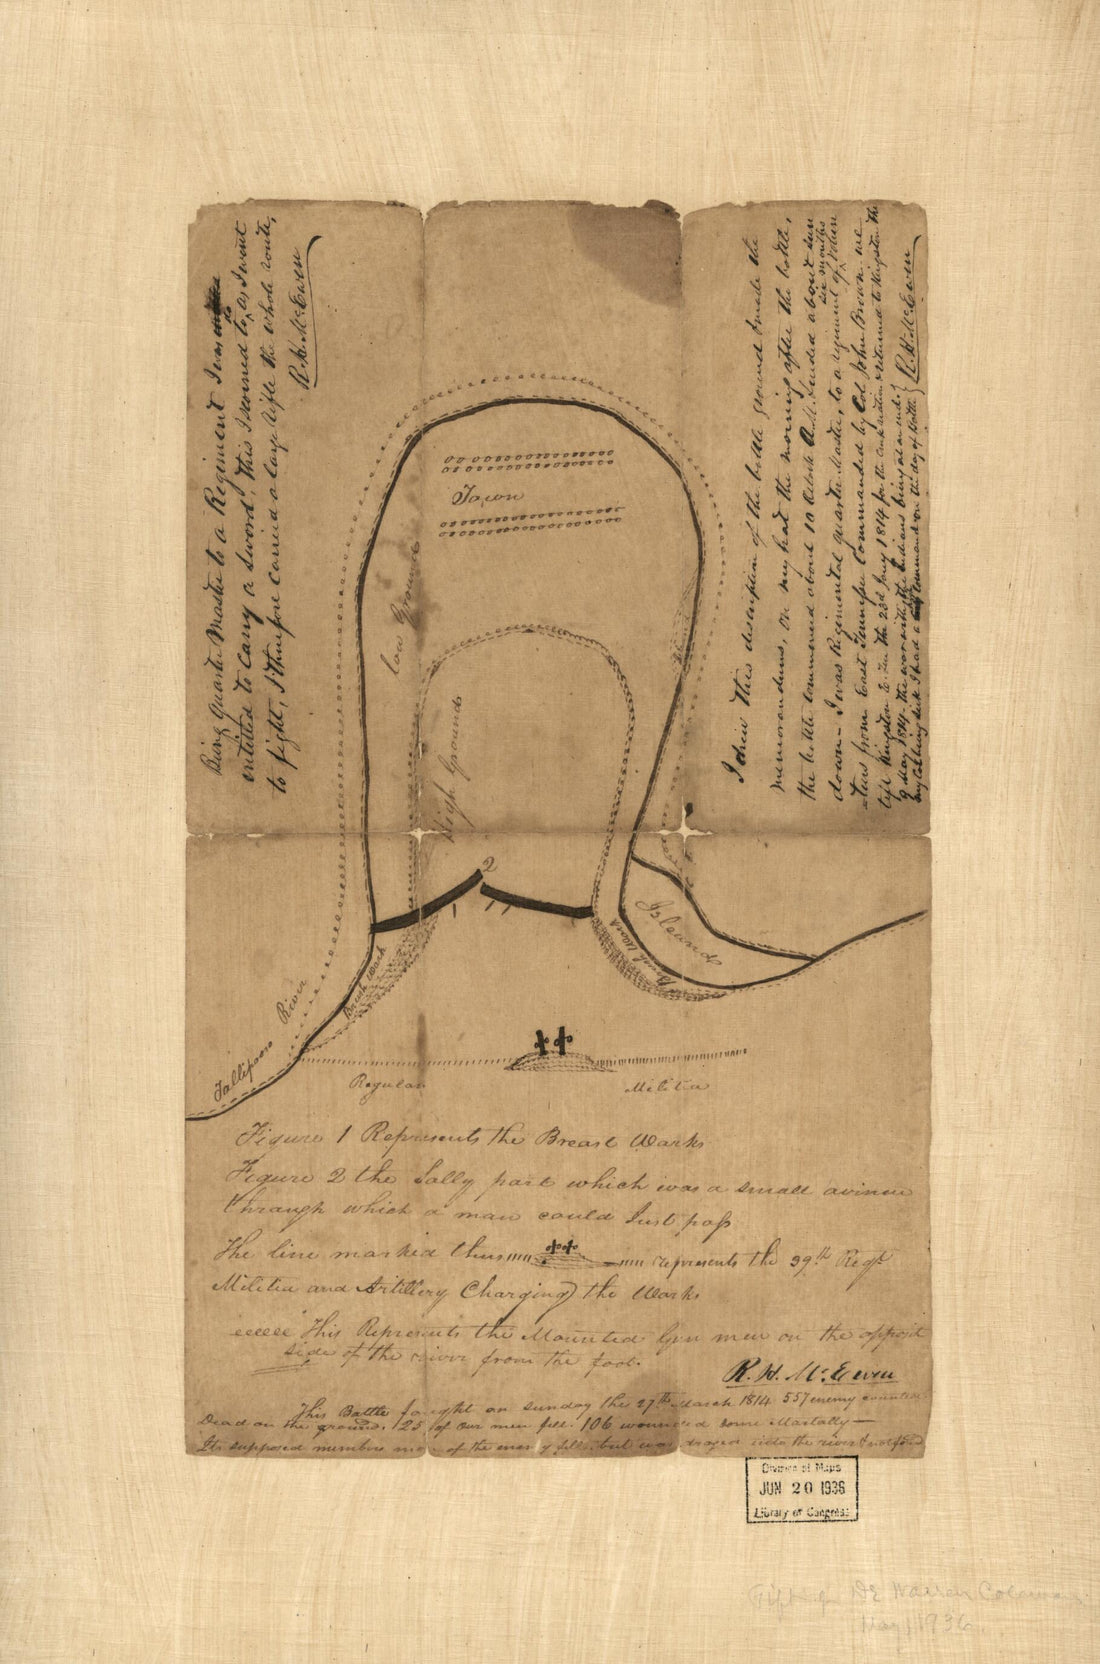 Being Quarter Master to a Regiment I was
not
entitled to carry a sword, this I scorned to, as I went
to fight, I therefore carried a large rifle the whole route,
R. H. McEwen
I drew this description of the battle ground & made the
memorandums, on my hat the morning after the battle,
the battle commenced about 10 Oclock A.M. & ended about sun
down - I was Regimental Quarter Master, to a regiment of six months Volun
-teers from East Tennessee Commanded by Col John Brown we
left Kingston E. Ten the 23d Jany 1814 for the & returned to Kingston the
9 May 1814 the war with the Indians being at an end.
I had a command on the day of battle
R. H. McEwen
Town
low Ground
High Ground
2
1
Island
Brush Work
Brush Work
Tallipoosa River
Regulars
Militia
Figure 1 Represents the Breast Works
Figure 2 the Sally part which was a small avinue
through which a man could Just pass
The line marked thus represents the 39th Regt
Militia and Artillery Charging the Works
eeeeee This Represents the Mounted Gun men on the opposit
side of the river from the foot.
R. H. McEwen
This Battle faught on sunday the 27th March 1814. 557 enemy counted
Dead on the ground. 125 of our men fell. 106 wounded some Mortally —
Its supposed numbers more of the enemy fell. but was draged into the river & not found
Division of Maps
JUN 20 1936
Library of Congress
Gift of De Warren Calaway
May, 1936